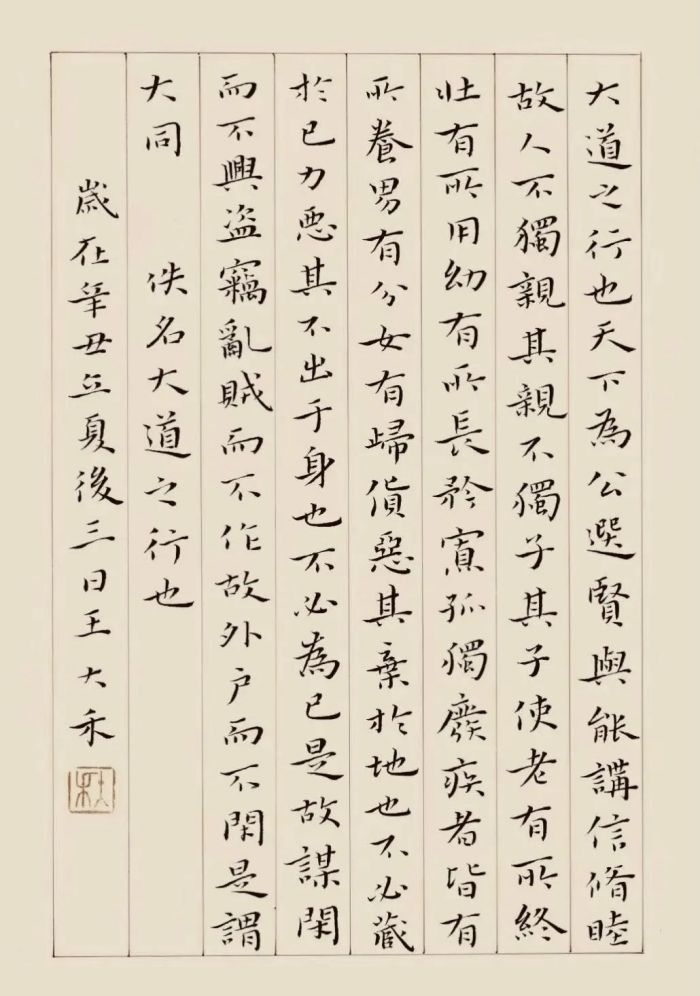 大道之行也天下為公選賢與能講信脩睦
故人不獨親其親不獨子其子使老有所終
壯有所用幼有所長矜寡孤獨廢疾者皆有
所養男有分女有歸貨惡其棄於地也不必藏
於己力悪其不出于身也不必為己是故謀閉
而不興盜竊亂賊而不作故外戶而不閉是謂
大同 佚名大道之行也
歲在辛丑立夏後三日王大禾